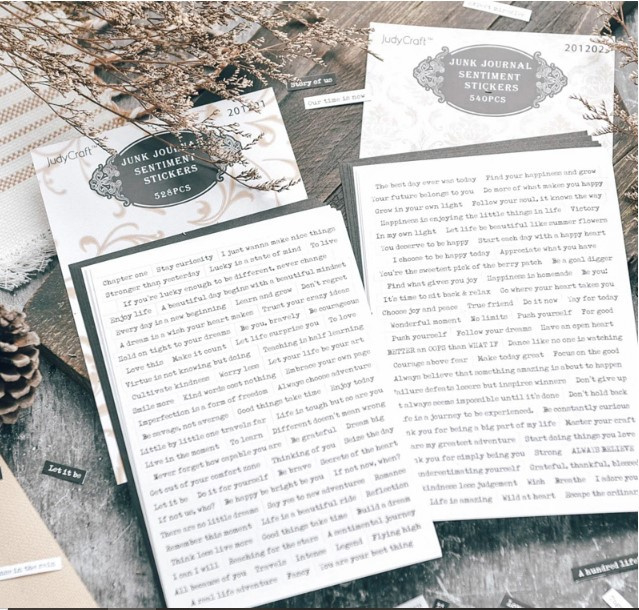 JudyCraft
201202
JUNK JOURNAL
SENTIMENT
STICKERS
540PCS
Story of us
Our time is now
JudyCraft
201201
JUNK JOURNAL
SENTIMENT
STICKERS
528PCS
Chapter one Stay curiosity I just wanna make nice things
Stronger than yesterday Lucky is a state of mind To live
If you're lucky enough to be different, never change
Enjoy life A beautiful day begins with a beautiful mindset
Every day is a new beginning Learn and grow Don't regret
A dream is a wish your heart makes Trust your crazy ideas
Hold on tight to your dreams Be you, bravely Be courageous
Love this Make it count Let life surprise you To love
Virtue is not knowing but doing Teaching is half learning
Cultivate kindness Worry less Let your life be your art
Smile more Kind words cost nothing Embrace your own page
Imperfection is a form of freedom Always choose adventure
Be savage, not average Good things take time Enjoy today
Little by little one travels far Life is tough but so are you
Live in the moment To learn Different doesn't mean wrong
Never forget how capable you are Be grateful Dream big
Get out of your comfort zone Thinking of you Seize the day
Let it be Do it for yourself Be brave Secrets of the heart
If not us, who? Be happy be bright be you If not now, when?
There are no little dreams Say yes to new adventures Romance
Remember this moment Life is a beautiful ride Reflection
Think less live more Good things take time Build a dream
I can I will Reaching for the stars A sentimental journey
All because of you Travels Intense Legend Flying high
A cool life adventure Fancy You are your best thing
The best day ever was today Find your happiness and grow
Your future belongs to you Do more of what makes you happy
Grow in your own light Follow your soul, it knows the way
Happiness is enjoying the little things in life Victory
In my own light Let life be beautiful like summer flowers
You deserve to be happy Start each day with a happy heart
I choose to be happy today Appreciate what you have
You're the sweetest pick of the berry patch Be a goal digger
Find what gives you joy Happiness is homemade Be you!
It's time to sit back & relax Go where your heart takes you
Choose joy and peace True friend Do it now Yay for today
Wonderful moment No limits Push yourself For good
Push yourself Follow your dreams Have an open heart
BETTER an OOPS than WHAT IF Dance like no one is watching
Courage above fear Make today great Focus on the good
Always believe that something amazing is about to happen
failure defeats losers but inspires winners Don't give up
t always seems impossible until it's done Don't hold back
fe is a journey to be experienced. Be constantly curious
nk you for being a big part of my life Master your craft
are my greatest adventure Start doing things you love
nk you for simply being you Strong ALWAYS BELIEVE
underestimating yourself Grateful, thankful, blesse
kindness less judgement Wish Breathe I adore you
Life is amazing Wild at heart Escape the ordina
Let it be
nce in the rain
A hundred life